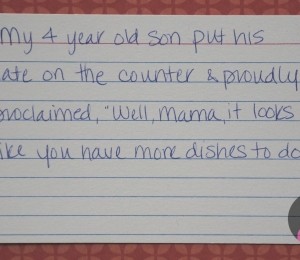 My 4 year old son put his
ate on the counter & proudly
roclaimed, "Well, Mama, it looks
ike you have more dishes to do